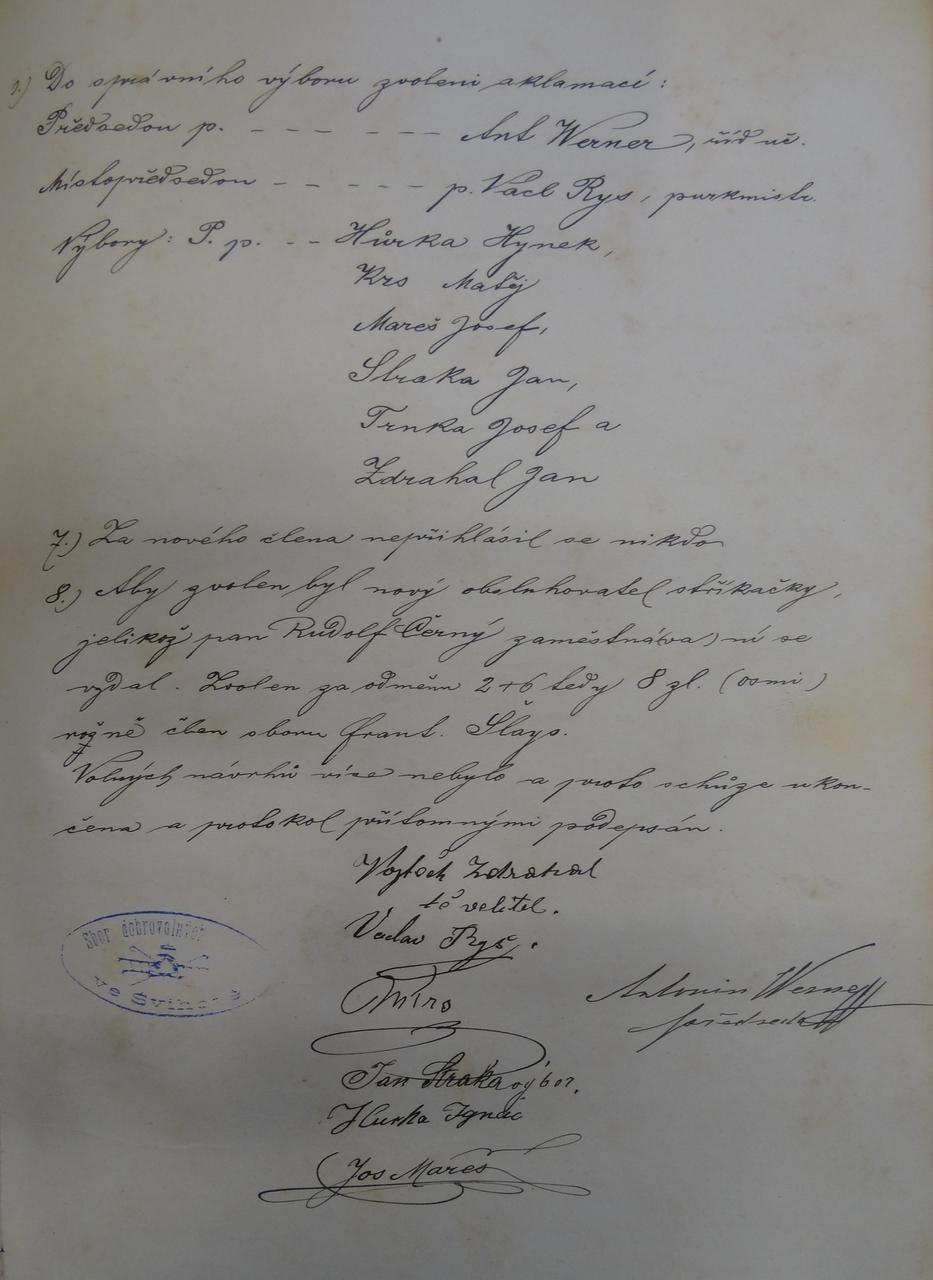 ) Do správního výboru zvoleni aklamací:
Předsedou p. - - - - - - Ant Werner, říd uč.
Místopředsedou - - - - - p. Václ Rys, purkmistr.
Výbory: P. p. - - Hůrka Hynek,
Krs Matěj
Mareš Josef,
Straka Jan,
Trnka Josef a
Zdrahal Jan
7.) Za nového člena nepřihlásil se nikdo
8.) Aby zvolen byl nový obsluhovatel stříkačky,
jelikož pan Rudolf Černý zaměstná(va)ní se
vzdal. Zvolen za odměnu 2+6 tedy 8 zl. (osmi)
ročně člen sboru Frant. Šlajs.
Volných návrhů více nebylo a proto schůze ukon-
čena a protokol přítomnými podepsán.
Vojtěch Zdrahal
velitel.
Václav Ryš.
Antonin Werner
předseda
Jan Straka výbor.
Hurka Ignác
Jos Mareš
Sbor dobrovolných
ve Švihově